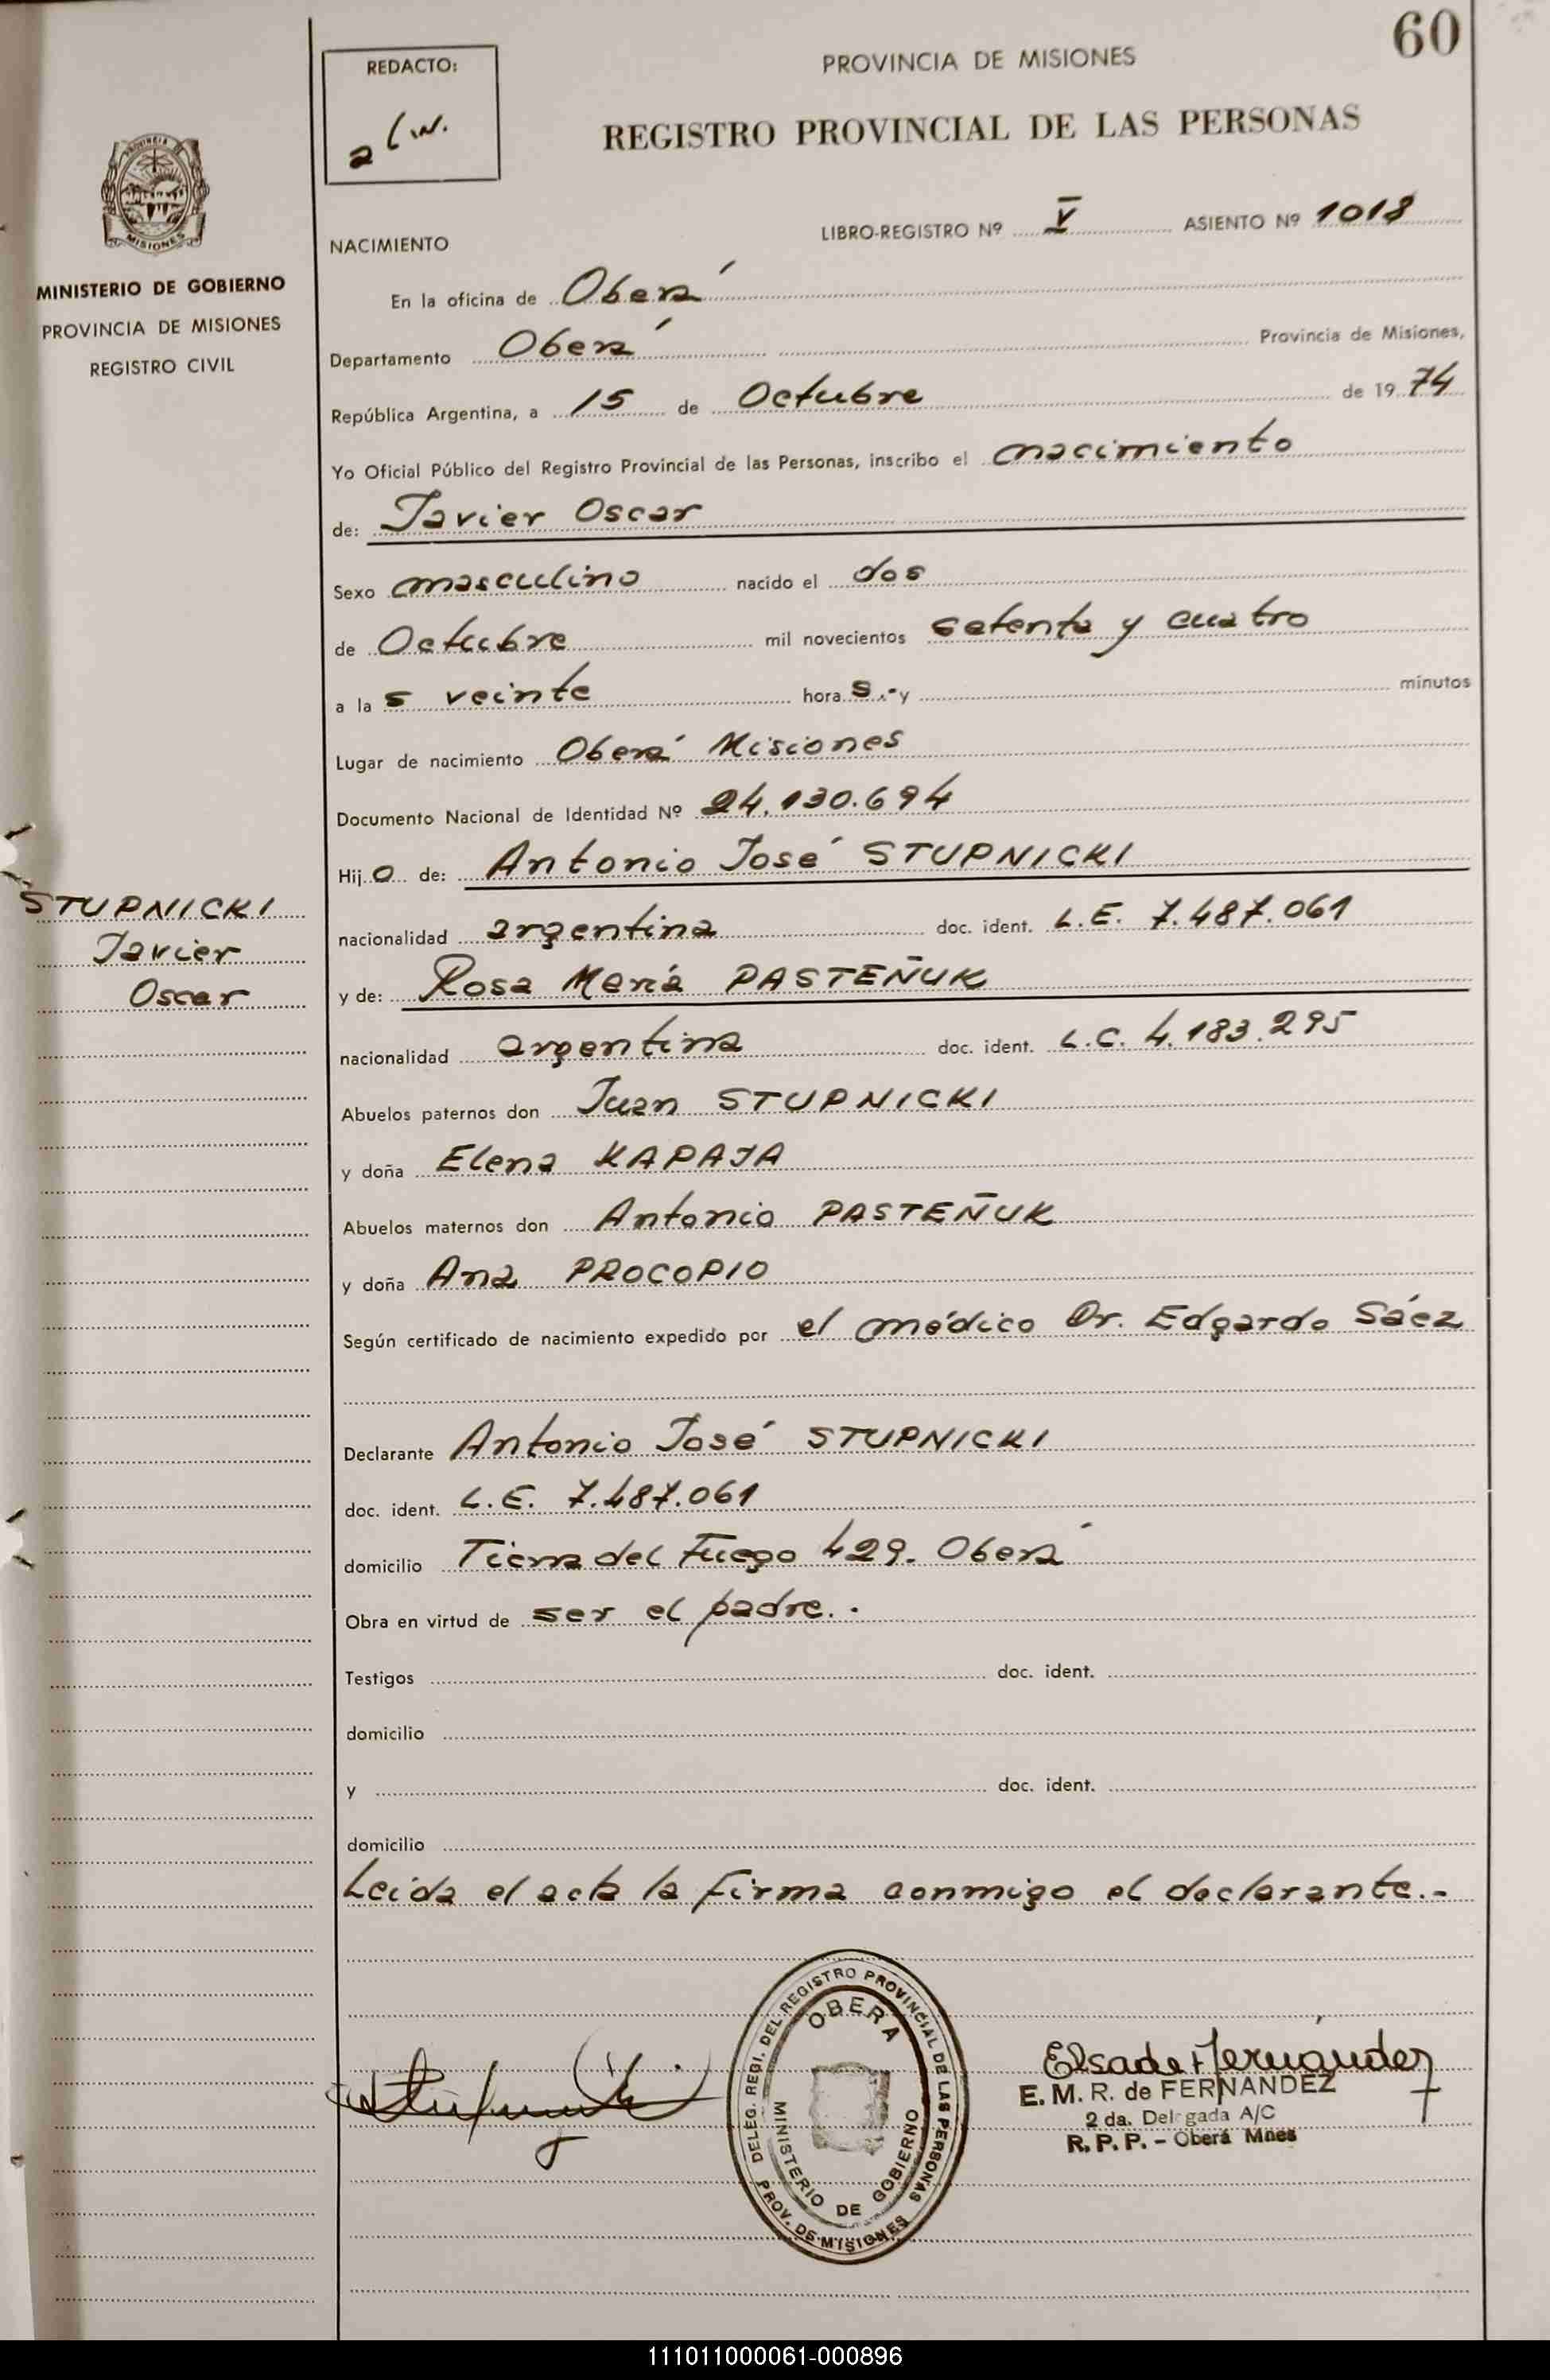 60
REDACTO:
PROVINCIA DE MISIONES
REGISTRO PROVINCIAL DE LAS PERSONAS
PROVINCIA DE
MISIONES
MINISTERIO DE GOBIERNO
PROVINCIA DE MISIONES
REGISTRO CIVIL
LIBRO-REGISTRO Nº V ASIENTO Nº 1018
NACIMIENTO
En la oficina de Oberá
Departamento Oberá Provincia de Misiones,
República Argentina, a 15 de Octubre de 1974
Yo Oficial Público del Registro Provincial de las Personas, inscribo el nacimiento
de: Javier Oscar
Sexo masculino nacido el dos
de Octubre mil novecientos setenta y cuatro
a la s veinte hora s.- y minutos
Lugar de nacimiento Oberá Misiones
Documento Nacional de Identidad Nº 24.130.694
Hijo de: Antonio José STUPNICKI
STUPNICKI
Javier
Oscar
nacionalidad argentina doc. ident. L.E. 7.487.061
y de: Rosa María PASTEÑUK
nacionalidad argentina doc. ident. L.C. 4.183.295
Abuelos paternos don Juan STUPNICKI
y doña Elena KAPAJA
Abuelos maternos don Antonio PASTEÑUK
y doña Ana PROCOPIO
Según certificado de nacimiento expedido por el médico Dr. Edgardo Sáez
Declarante Antonio José STUPNICKI
doc. ident. L.E. 7.487.061
domicilio Tierra del Fuego 429. Oberá
Obra en virtud de ser el padre..
Testigos doc. ident.
domicilio
y doc. ident.
domicilio
Leida el acta la firma conmigo el declarante.-
DELEG. REGI. DEL REGISTRO PROVINCIAL DE LAS PERSONAS
PROV. DE MISIONES
OBERA
MINISTERIO DE GOBIERNO
Elsa de Fernández
E. M. R. de FERNANDEZ
2 da. Delegada A/C
R. P. P. - Oberá Mnes
111011000061-000896